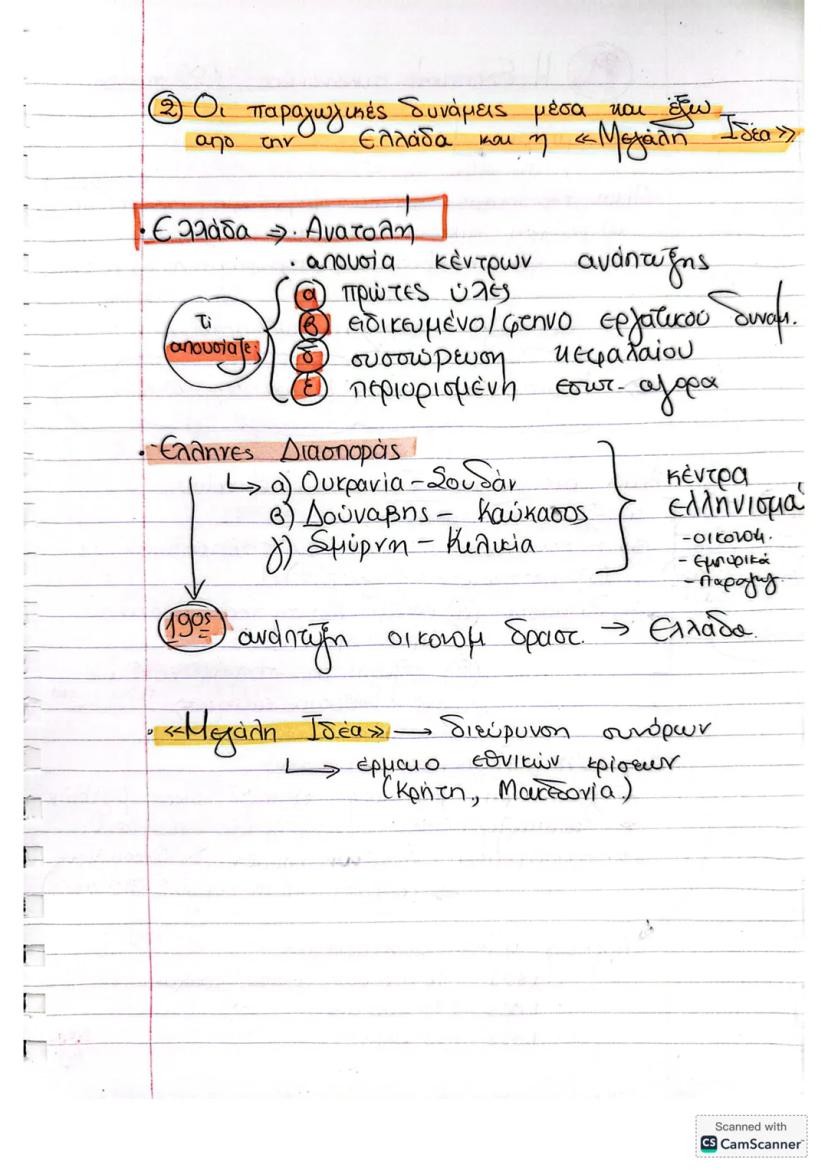 ② Οι παραγωγικές δυνάμεις μέσα και έξω
απο την Ελλάδα και η «Μεγάλη Ιδέα»
· Ελλάδα ⇒ · Ανατολή
· απουσία κέντρων ανάπτυξης
Τι απουσίαζε;
α πρώτες ύλες
β ειδικευμένο/φτηνο εργατικού δυναμ.
δ συσσώρευση κεφαλαίου
ε περιορισμένη εσωτ- αγορα
· -Ελληνες Διασποράς
↳ α) Ουκρανία - Σουδάν
β) Δούναβης - Καύκασος
γ) Σμύρνη - Κιλικία
κέντρα
ελληνισμά
- οικονομ.
- εμπορικά
- παραγωγ.
19ος ανάπτυξη οικονομ δραστ. → Ελλάδα.
· «Μεγάλη Ιδέα» → διεύρυνση συνόρων
↳ έρμαιο εθνικών κρίσεων
(Κρήτη, Μακεδονία)
Scanned with
CS CamScanner